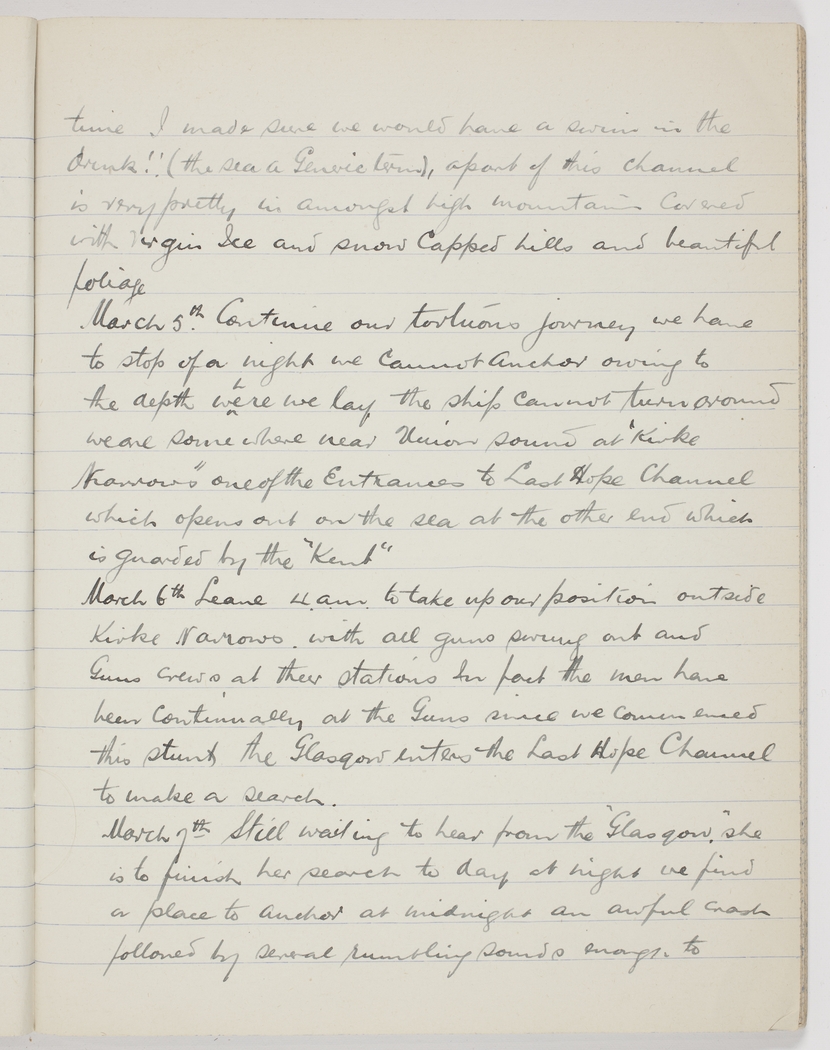 time I made sure we would have a swim in the
drink!! (the sea a Generic term), apart of this channel
is very pretty in amongst high mountains Covered
with Virgin Ice and snow Capped hills and beautiful
foliage
March 5th. Continue our tortuous journey we have
to stop of a night we cannot Anchor owing to
the depth where we lay, the ship cannot turn around
we are some where near Union sound at "Kirke
Narrows" one of the Entrances to Last Hope Channel
which opens out on the sea at the other end which
is guarded by the "Kent"
March 6th Leave 4.am. to take up our position outside
Kirke Narrows. with all guns swung out and
Guns crews at their stations In fact the men have
been Continually at the Guns since we commenced
this stunt, the Glasgow enters the Last Hope Channel
to make a search.
March 7th Still waiting to hear from the "Glasgow," she
is to finish her search to day, at night we find
a place to anchor at midnight an awful crash
followed by several rumbling sounds enough to